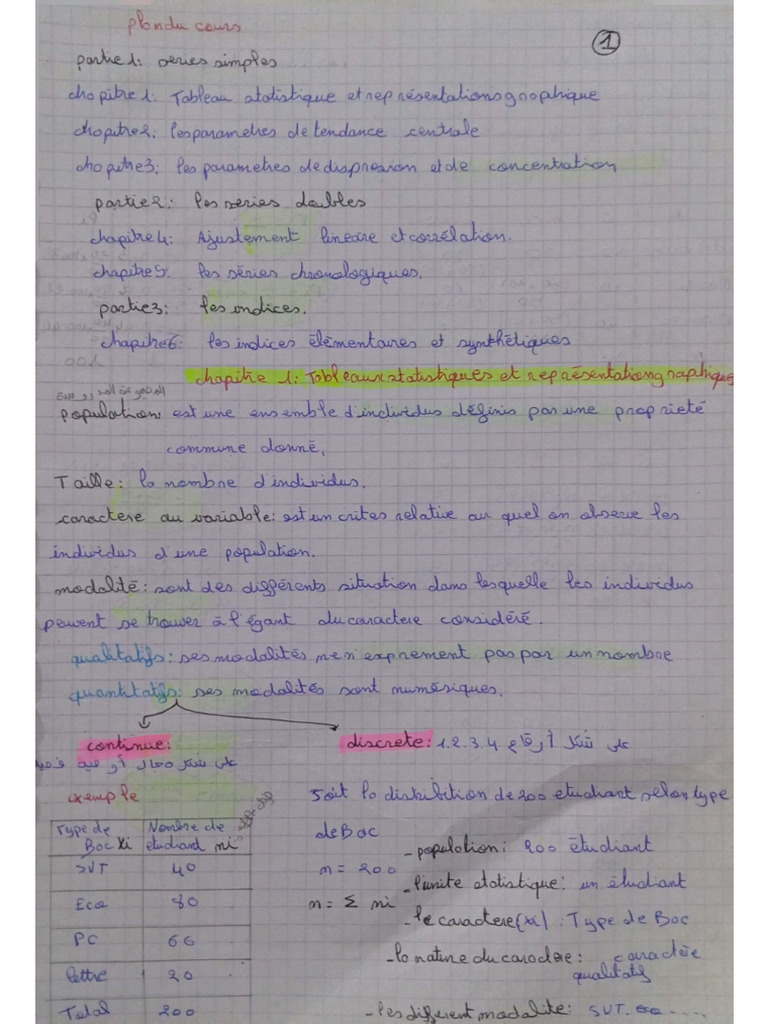 plan du cours
1
partie 1: series simples
chapitre 1: Tableau statistique et représentations graphique
chapitre 2: les parametres de tendance centrale
chapitre 3: les parametres de dispresion et de concentration
partie 2: les séries doubles
chapitre 4: Ajustement lineaire et corrélation.
chapitre 5: les séries chronologiques.
partie 3: les indices.
chapitre 6: les indices élémentaires et synthétiques
chapitre 1: Tableaux statistiques et représentation graphiques
المجموعة المدروسة
population: est une ensemble d'individus définis par une proprieté
commune donné,
Taille: la nombre d'individus.
caractere au variable: est un crites relative au quel on observe les
individus d'une population.
modalité: sont des différents situation dans lesquelle les individus
peuvent se trouver à l'égant du caractere considéré.
qualitatifs: ses modalités ne n'exprement pas par un nombre
quantitatifs: ses modalités sont numériques.
continue: discrete: 1.2.3.4 على شكل أرقام
على شكل مجال أو
exemple Soit la distribition de 200 etudiant selon type
de Bac
Type de Bac xi Nombre de etudiant ni
SVT 40
Eco 80
PC 60
lettre 20
Total 200
n = 200
n = Σ ni
- population: 200 étudiant
- l'unite statistique: un étudiant
- le caractere (xi) : Type de Bac
- la nature du caractere: caractère
qualitatifs
- les different modalite: SVT. eco .....